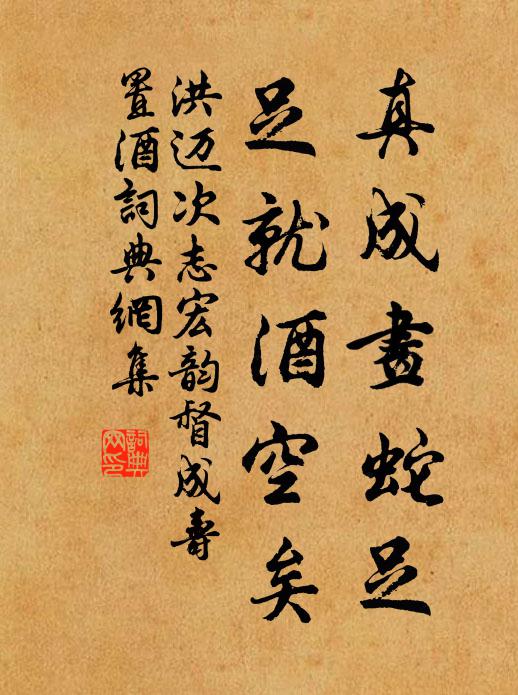 真成畫蛇足
足就酒空矣
洪迈次志宏韵督成壽
置酒詞典網集
詞典
网印